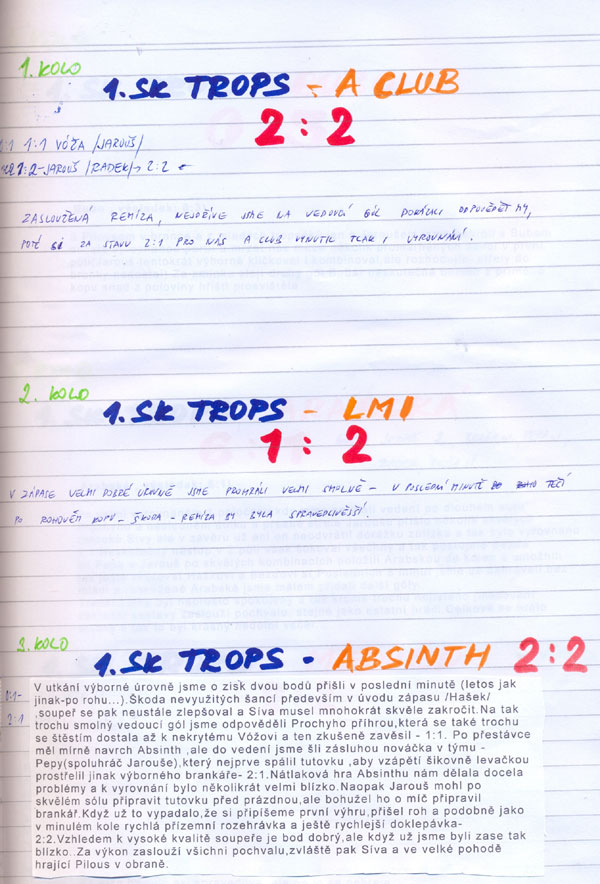 1. KOLO
1. SK TROPS - A CLUB
2 : 2
1:1 VÓŽA /JAROUŠ/
1:2-JAROUŠ /RADEK/ 2:2
ZASLOUŽENÁ REMÍZA, NEJDŘÍVE JSME NA VEDOUCÍ GÓL DOKÁZALI ODPOVĚDĚT MY,
POTÉ ZA STAVU 2:1 PRO NÁS A CLUB VYNUTIL TLAK I VYROVNÁNÍ.
2. KOLO
1. SK TROPS - LMI
1 : 2
V ZÁPASE VELMI DOBRÉ ÚROVNĚ JSME PROHRÁLI VELMI SMOLNĚ - V POSLEDNÍ MINUTĚ TEČÍ
PO ROHOVÉM KOPU - ŠKODA - REMÍZA BY BYLA SPRAVEDLIVĚJŠÍ.
3. KOLO
1. SK TROPS - ABSINTH 2:2
V utkání výborné úrovně jsme o zisk dvou bodů přišli v poslední minutě (letos jak
jinak-po rohu...).Škoda nevyužitých šancí především v úvodu zápasu /Hašek/
,soupeř se pak neustále zlepšoval a Síva musel mnohokrát skvěle zakročit.Na tak
trochu smolný vedoucí gól jsme odpověděli Prochyho příhrou,která se také trochu
se štěstím dostala až k nekrytému Vóžovi a ten zkušeně zavěsil - 1:1. Po přestávce
měl mírně navrch Absinth ,ale do vedení jsme šli zásluhou nováčka v týmu -
Pepy(spoluhráč Jarouše),který nejprve spálil tutovku ,aby vzápětí šikovně levačkou
prostřelil jinak výborného brankáře- 2:1.Nátlaková hra Absinthu nám dělala docela
problémy a k vyrovnání bylo několikrát velmi blízko.Naopak Jarouš mohl po
skvělém sólu připravit tutovku před prázdnou,ale bohužel ho o míč připravil
brankář.Když už to vypadalo,že si připíšeme první výhru,přišel roh a podobně jako
v minulém kole rychlá přízemní rozehrávka a ještě rychlejší doklepávka-
2:2.Vzhledem k vysoké kvalitě soupeře je bod dobrý,ale když už jsme byli zase tak
blízko..Za výkon zaslouží všichni pochvalu,zvláště pak Síva a ve velké pohodě
hrající Pilous v obraně.